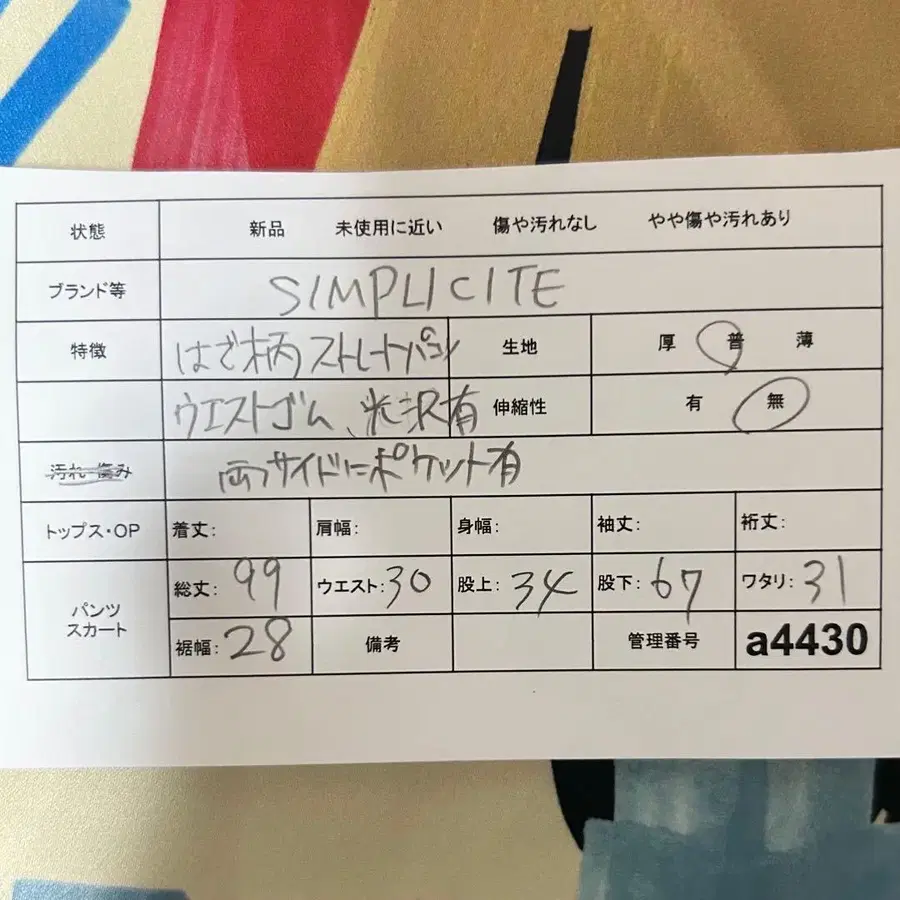 状態 新品 未使用に近い 傷や汚れなし やや傷や汚れあり
ブランド等 SIMPLICITE
特徴 はざ柄ストレートパンツ 生地 厚 普 薄
ウエストゴム、光沢有 伸縮性 有 無
汚れ・傷み 両サイドにポケット有
トップス・OP 着丈: 肩幅: 身幅: 袖丈: 裄丈:
パンツ スカート 総丈: 99 ウエスト: 30 股上: 34 股下: 67 ワタリ: 31
裾幅: 28 備考 管理番号 a4430